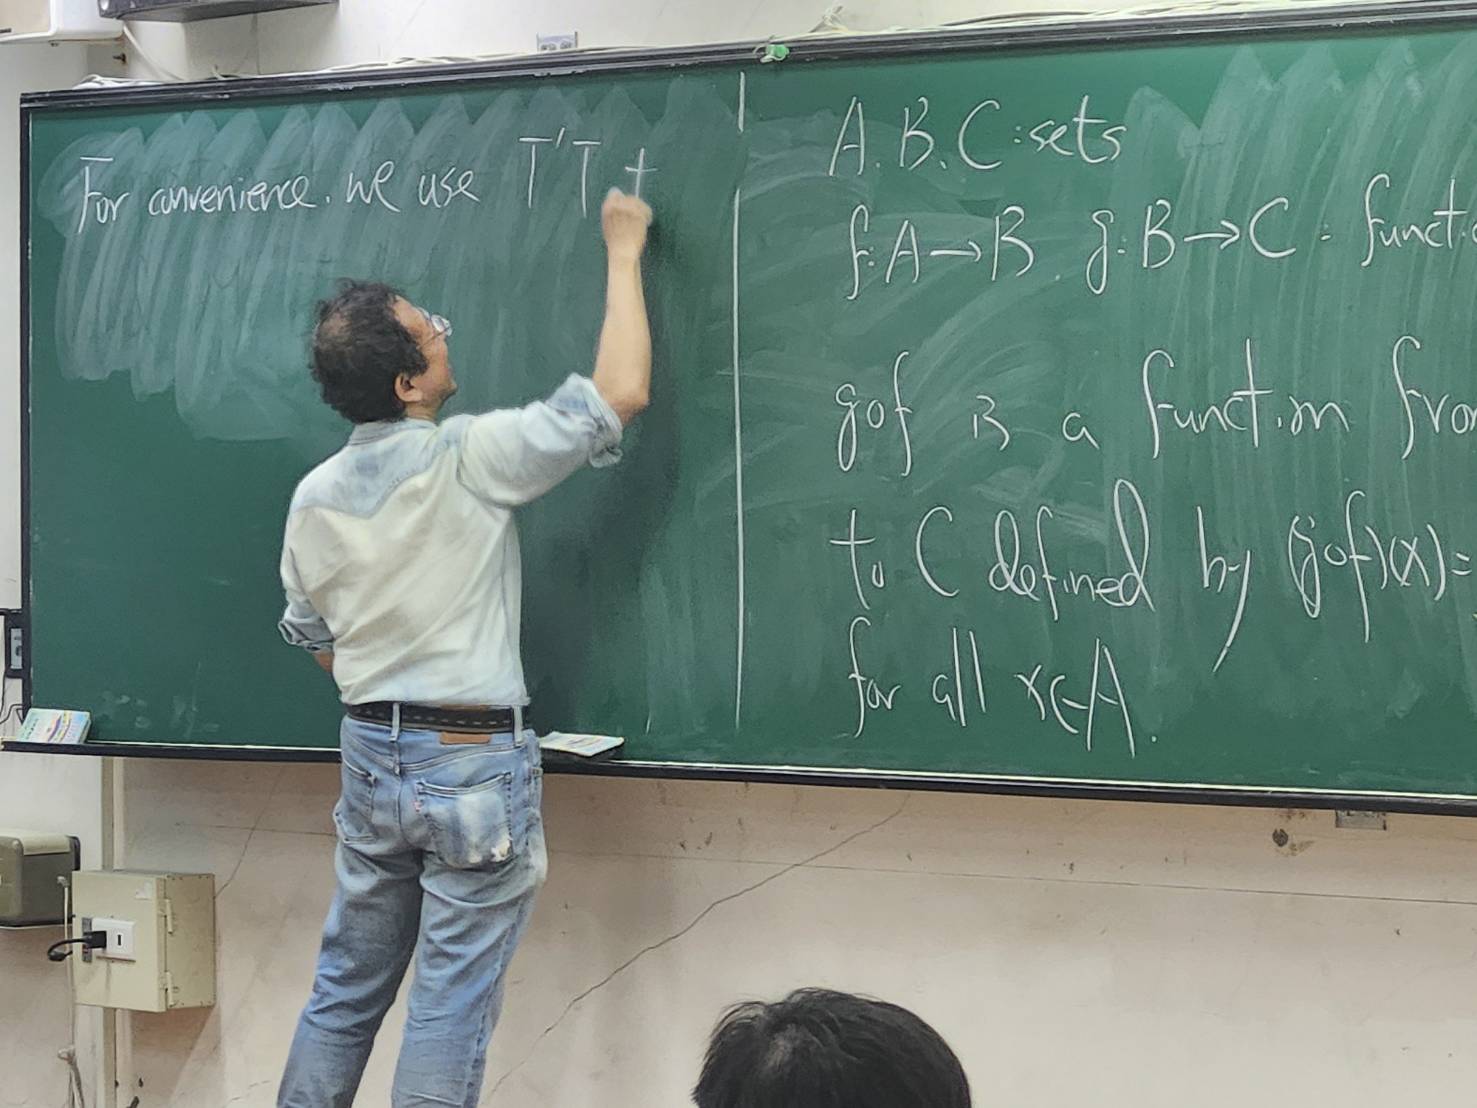 For convenience. we use T'T t
A. B. C : sets
f: A → B. g: B → C : functi
g∘f is a function from
to C defined by (g∘f)(x) =
for all x ∈ A.